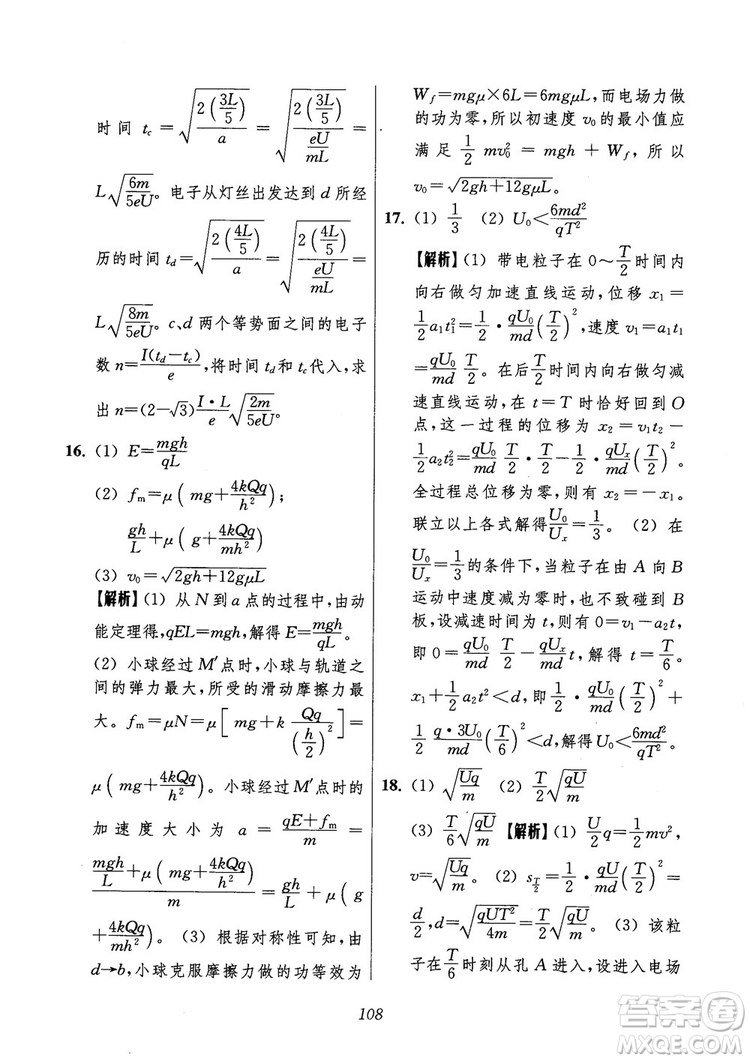 时间 t_c = √(2(3L/5)/a) = √(2(3L/5)/(eU/mL)) =
L√(6m/5eU)。电子从灯丝出发达到 d 所经
历的时间 t_d = √(2(4L/5)/a) = √(2(4L/5)/(eU/mL)) =
L√(8m/5eU)。c、d 两个等势面之间的电子
数 n = I(t_d−t_c)/e,将时间 t_d 和 t_c 代入,求
出 n = (2−√3) I·L/e √(2m/5eU)。
16. (1) E = mgh/qL
(2) f_m = μ(mg + 4kQq/h²);
gh/L + μ(g + 4kQq/mh²)
(3) v₀ = √(2gh+12gμL)
【解析】(1) 从 N 到 a 点的过程中,由动
能定理得,qEL=mgh,解得 E = mgh/qL。
(2) 小球经过 M′点时,小球与轨道之
间的弹力最大,所受的滑动摩擦力最
大。f_m = μN = μ[mg + k Qq/(h/2)²] =
μ(mg + 4kQq/h²)。小球经过 M′点时的
加速度大小为 a = (qE+f_m)/m =
(mgh/L + μ(mg + 4kQq/h²))/m = gh/L + μ(g
+ 4kQq/mh²)。(3) 根据对称性可知,由
d→b,小球克服摩擦力做的功等效为
W_f = mgμ×6L = 6mgμL,而电场力做
的功为零,所以初速度 v₀ 的最小值应
满足 1/2 mv₀² = mgh + W_f,所以
v₀ = √(2gh+12gμL)。
17. (1) 1/3 (2) U₀ < 6md²/qT²
【解析】(1) 带电粒子在 0~T/2 时间内
向右做匀加速直线运动,位移 x₁ =
1/2 a₁t₁² = 1/2 · qU₀/md (T/2)²,速度 v₁ = a₁t₁
= qU₀/md T/2。在后 T/2 时间内向右做匀减
速直线运动,在 t = T 时恰好回到 O
点,这一过程的位移为 x₂ = v₁t₂ −
1/2 a₂t₂² = qU₀/md · T/2 · T/2 − 1/2 · qU_x/md (T/2)²。
全过程总位移为零,则应有 x₂ = −x₁。
联立以上各式解得 U₀/U_x = 1/3。(2) 在
U₀/U_x = 1/3 的条件下,当粒子在由 A 向 B
运动中速度减为零时,也不致碰到 B
板,设减速时间为 t,则有 0 = v₁ − a₂t,
即 0 = qU₀/md · T/2 − qU_x/md t,解得 t = T/6。
x₁ + 1/2 a₂t² < d,即 1/2 · qU₀/md (T/2)² +
1/2 q·3U₀/md (T/6)² < d,解得 U₀ < 6md²/qT²。
18. (1) √(Uq/m) (2) T/2 √(qU/m)
(3) T/6 √(qU/m) 【解析】(1) U/2 q = 1/2 mv²,
v = √(Uq/m)。(2) s_{T/2} = 1/2 · qU/md (T/2)² =
d/2,d = √(qUT²/4m) = T/2 √(qU/m)。(3) 该粒
子在 T/6 时刻从孔 A 进入,设进入电场
108
答案圈
MXQE.COM